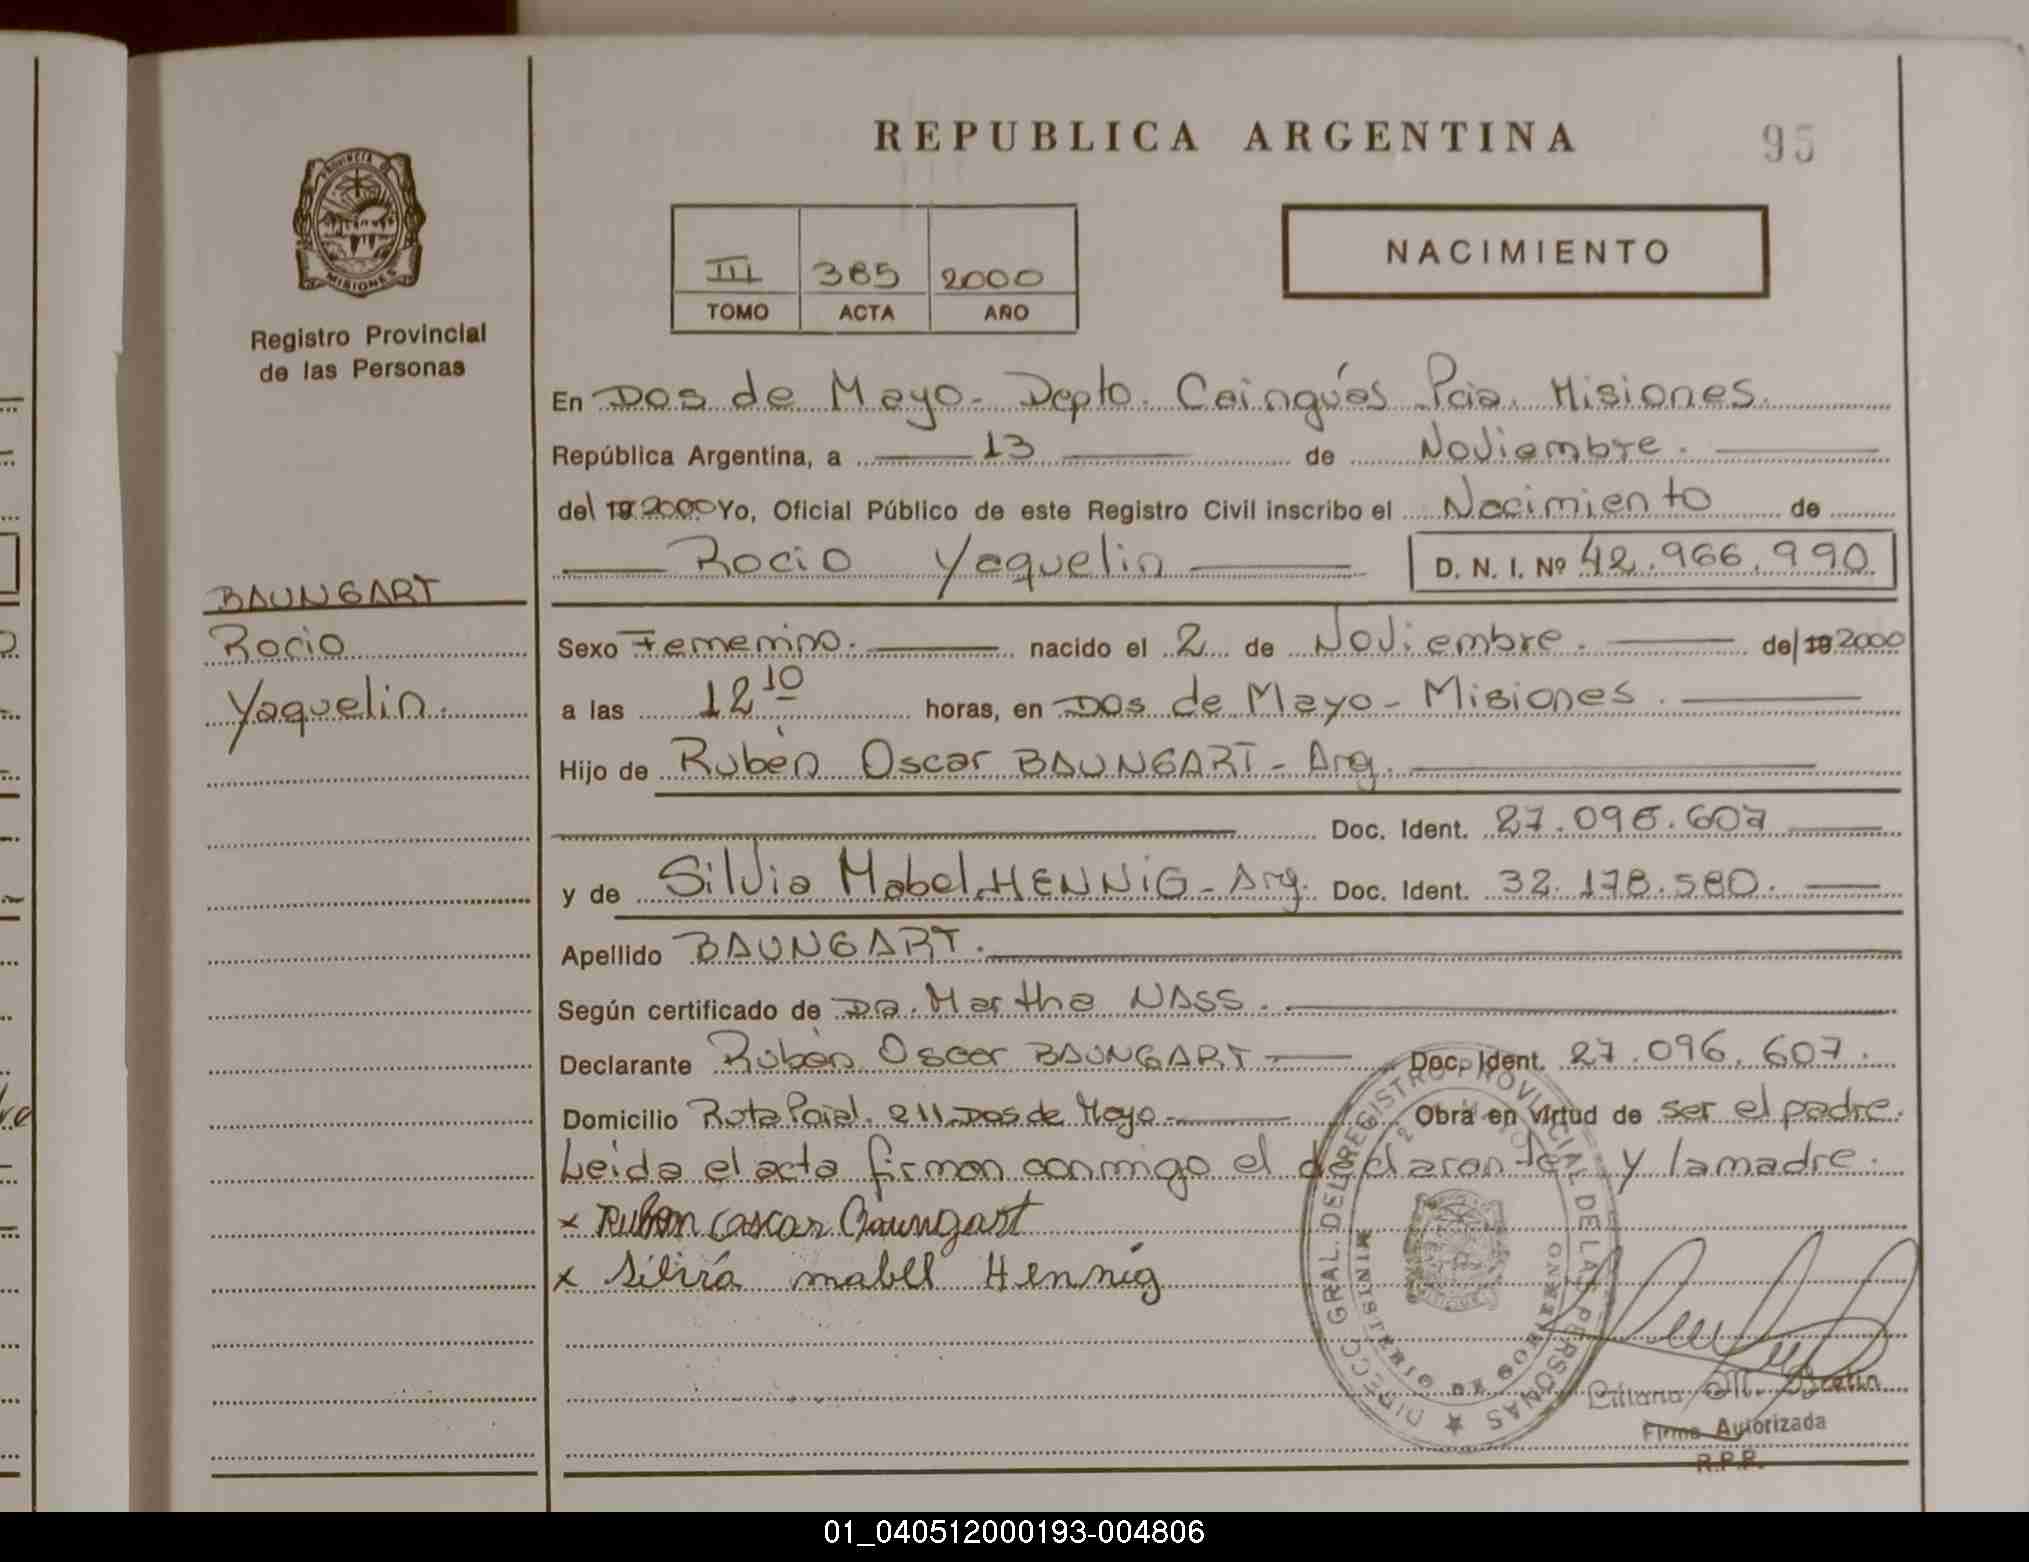 REPUBLICA ARGENTINA
95
PROVINCIA D
MISIONES
Registro Provincial
de las Personas
NACIMIENTO
III 385 2000
TOMO ACTA AÑO
En Dos de Mayo - Depto. Caingúas Pcia. Misiones.
República Argentina, a 13 de Noviembre.
del 19 2000 Yo, Oficial Público de este Registro Civil inscribo el Nacimiento de
Rocio Yaquelin D. N. I. Nº 42.966.990
BAUNGART
Rocio
Yaquelin.
Sexo Femenino. nacido el 2 de Noviembre. de 19 2000
a las 12 10 horas, en Dos de Mayo - Misiones.
Hijo de Rubén Oscar BAUNGART - Arg.
Doc. Ident. 27.096.607
y de Silvia Mabel HENNIG - Arg. Doc. Ident. 32.178.580.
Apellido BAUNGART.
Según certificado de Dra. Martha NASS.
Declarante Rubén Oscar BAUNGART Doc. Ident. 27.096.607.
Domicilio Ruta Pcial. 211 Dos de Mayo - Obra en virtud de ser el padre.
Leida el acta firman conmigo el declarante y la madre.
x Ruben Oscar Baungart
x Silvia mabel Hennig
DIRECC. GRAL. DEL REGISTRO PROVINCIAL DE LAS PERSONAS
MINISTERIO DE GOBIERNO
Liliana
Firma Autorizada
R.P.P.
01_040512000193-004806